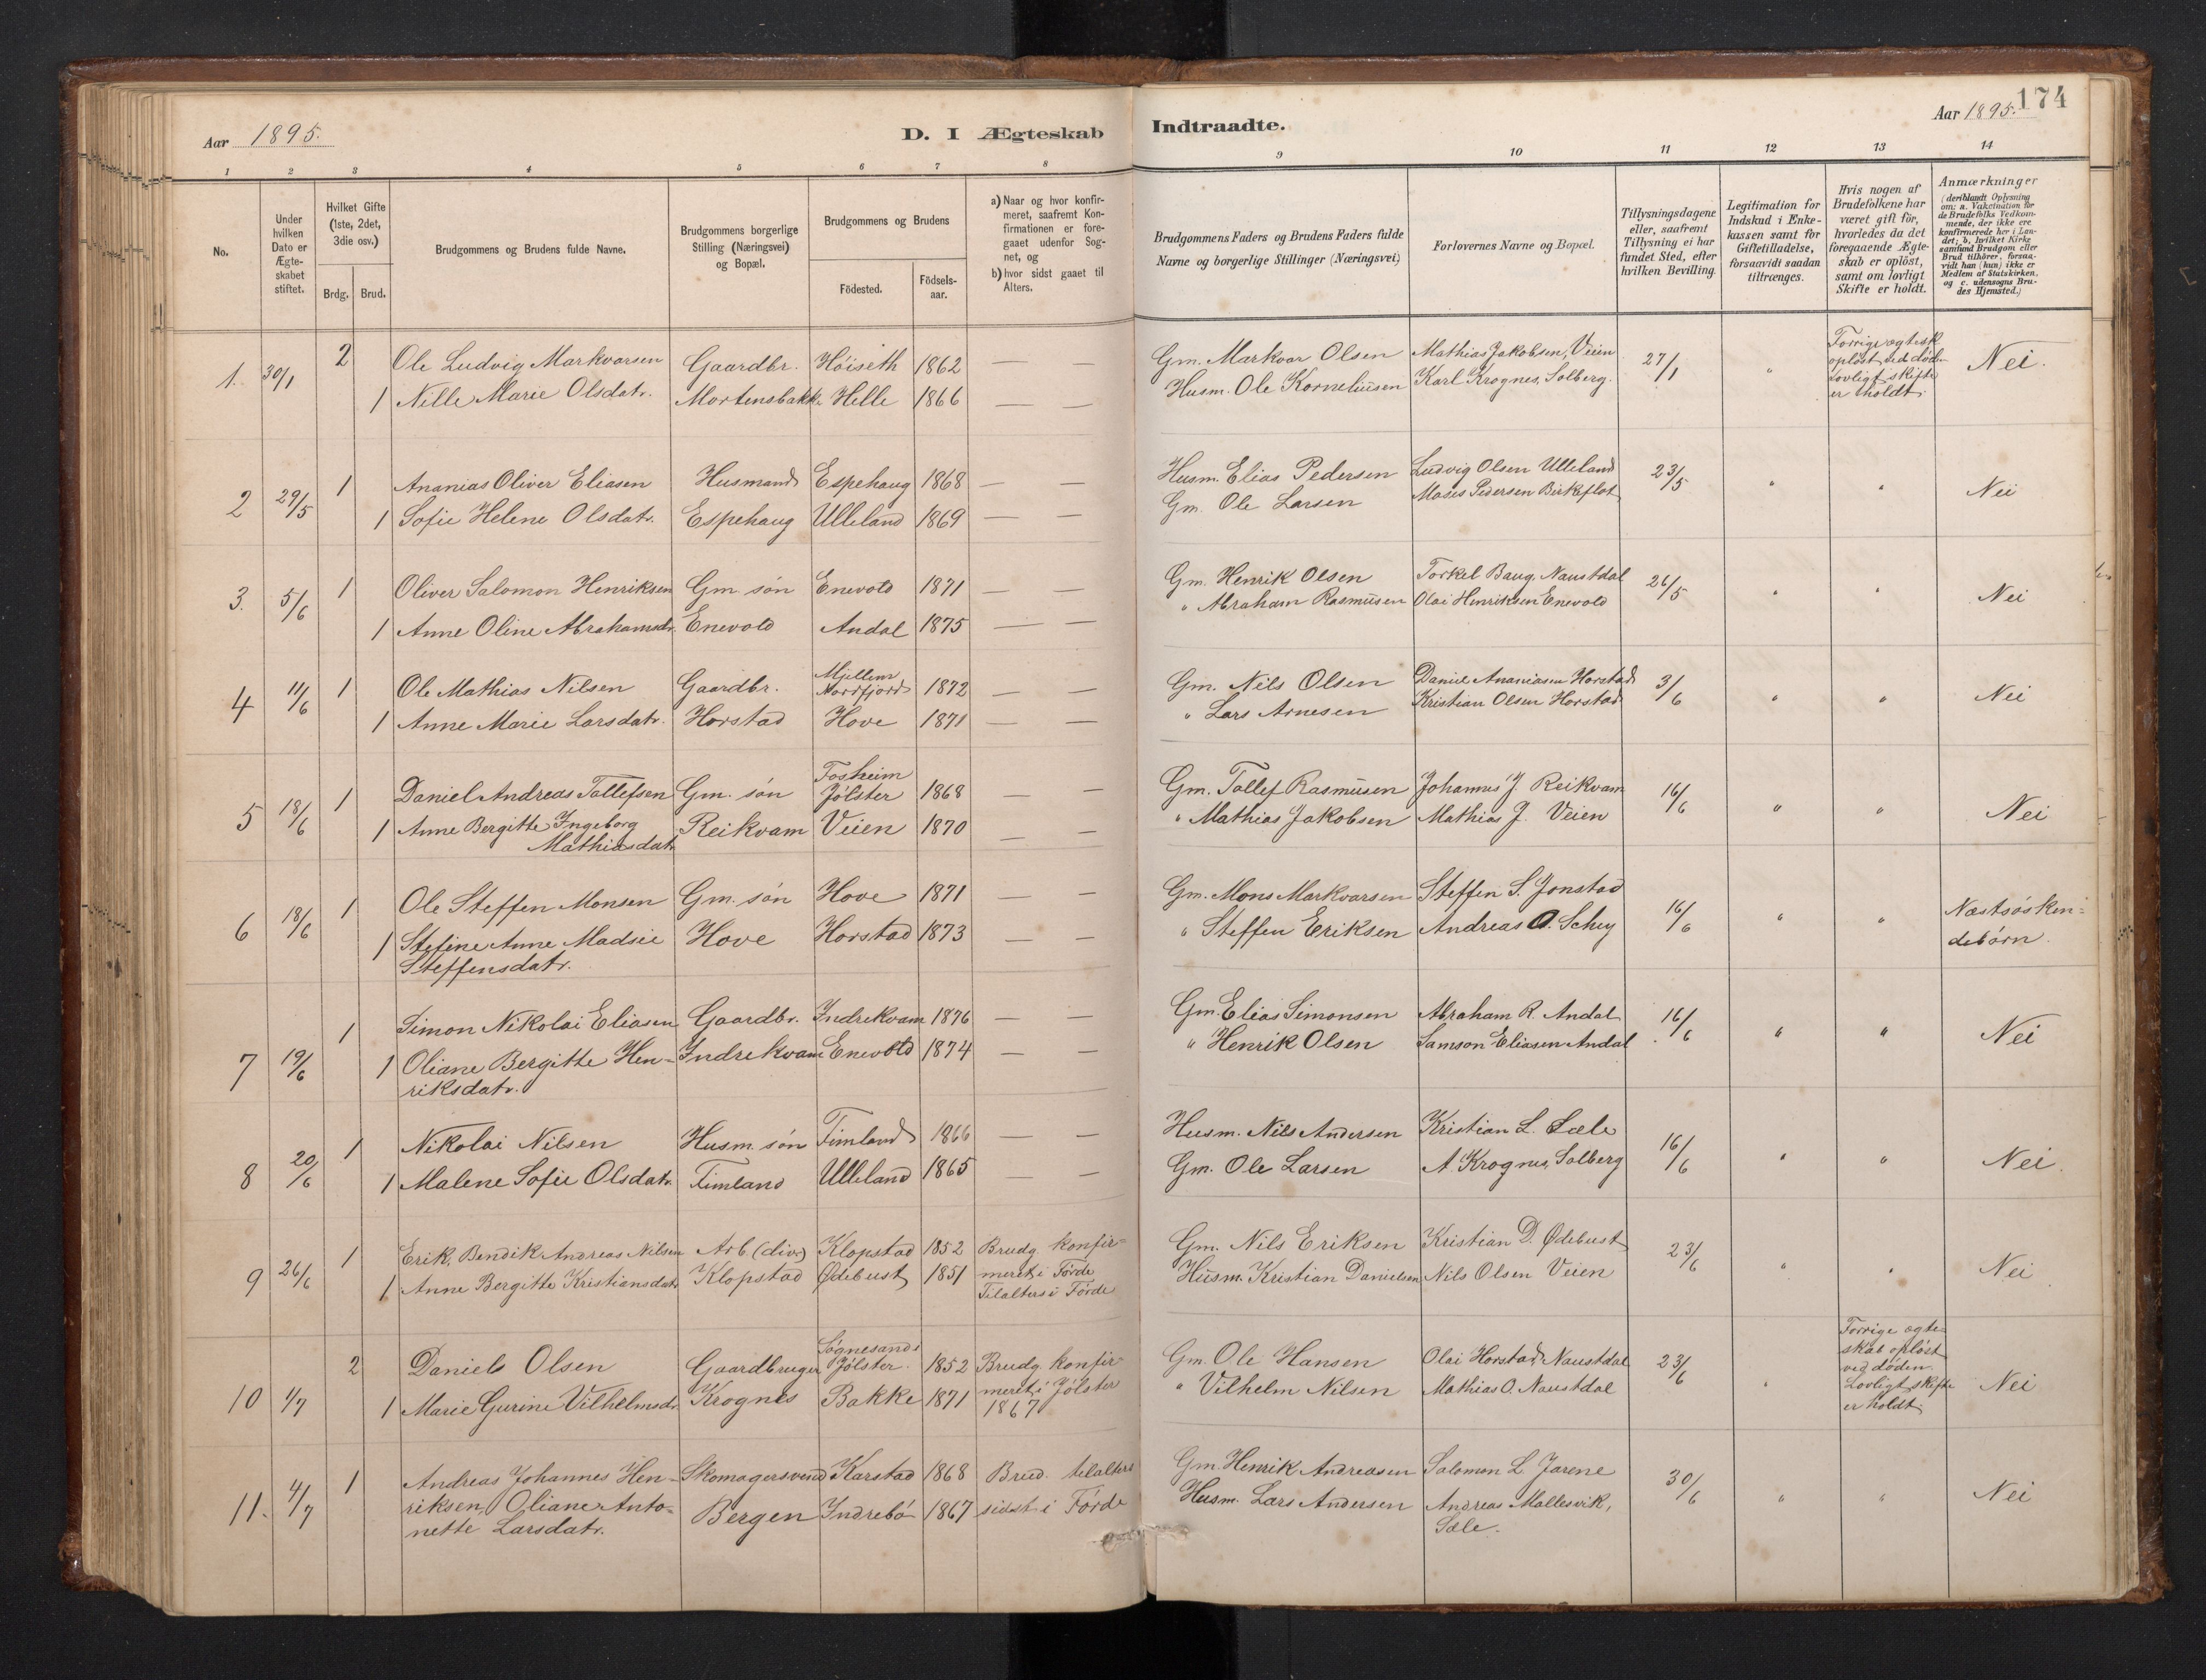 Aar 1895.
D. I Ægteskab Indtraadte.
Aar 1895.
174
1 2 3 4 5 6 7 8 9 10 11 12 13 14
No.
Under
hvilken
Dato er
Ægte-
skabet
stiftet.
Hvilket Gifte
(1ste, 2det,
3die osv.)
Brdg. Brud.
Brudgommens og Brudens fulde Navne.
Brudgommens borgerlige
Stilling (Næringsvei)
og Bopæl.
Brudgommens og Brudens
Födested.
Födsels-
aar.
a) Naar og hvor konfir-
meret, saafremt Kon-
firmationen er fore-
gaaet udenfor Sog-
net, og
b) hvor sidst gaaet til
Alters.
Brudgommens Faders og Brudens Faders fulde
Navne og borgerlige Stillinger (Næringsvei)
Forlovernes Navne og Bopæl.
Tillysningsdagene
eller, saafremt
Tillysning ei har
fundet Sted, efter
hvilken Bevilling.
Legitimation for
Indskud i Enke-
kassen samt for
Giftetilladelse,
forsaavidt saadan
tiltrænges.
Hvis nogen af
Brudefolkene har
været gift för,
hvorledes da det
foregaaende Ægte-
skab er oplöst,
samt om lovligt
Skifte er holdt.
Anmærkninger
(deriblandt Oplysning
om: a. Vakcination for
de Brudefolks Vedkom-
mende, der ikke ere
konfirmerede her i Lan-
det; b. hvilket Kirke
samfund Brudgom eller
Brud tilhörer, forsaa-
vidt han (hun) ikke er
Medlem af Statskirken,
og c. udensogns Bru-
des Hjemsted.)
1. 30/1 2 Ole Ludvig Markvarsen Gaardbr. Höiseth 1862 — — Gm. Markvar Olsen Mathias Jakobsen, Veien 27/1 " Forrige ægtesk. Nei.
oplöst ved död-
1 Nille Marie Olsdatr. Mortensbakk. Helle 1866 — — Husm. Ole Korneliusen Karl Krognes, Solberg. Lovligt skifte
er holdt.
2 29/5 1 Ananias Oliver Eliasen Husmand Espehaug 1868 — — Husm. Elias Pedersen Ludvig Olsen Ulleland 23/5 " " Nei
1 Sofie Helene Olsdatr. Espehaug Ulleland 1869 — — Gm. Ole Larsen Moses Pedersen Birkeflot
3. 5/6 1 Oliver Salomon Henriksen Gm. sön Enevold 1871 — — Gm. Henrik Olsen Torkel Baug, Naustdal 26/5 " " Nei
1 Anne Oline Abrahamsdr. Enevold Andal 1875 — — " Abraham Rasmusen Olai Henriksen Enevold
4 11/6 1 Ole Mathias Nilsen Gaardbr. Mjellem
Nordfjord 1872 — — Gm. Nils Olsen Daniel Ananiasen Horstad 3/6 " " Nei
1 Anne Marie Larsdatr. Horstad Hove 1871 — — " Lars Arnesen Kristian Olsen Horstad
5 18/6 1 Daniel Andreas Tollefsen Gm. sön Fosheim
Jölster 1868 — — Gm. Tollef Rasmusen Johannes J. Reikvam 16/6 " " Nei
1 Anne Bergitte Ingeborg Reikvam Veien 1870 — — " Mathias Jakobsen Mathias J. Veien
Mathiasdatr
6 18/6 1 Ole Steffen Monsen Gm. sön Hove 1871 — Gm. Mons Markvarsen Steffen S. Jonstad 16/6 " " Næstsösken-
1 Stefine Anne Madsie Hove Horstad 1873 — — " Steffen Eriksen Andreas O. Schey debörn.
Steffensdatr.
7 19/6 1 Simon Nikolai Eliasen Gaardbr. Indrekvam 1876 — — Gm. Elias Simonsen Abraham R. Andal 16/6 " " Nei
1 Oliane Bergitte Hen- Indrekvam Enevold 1874 — — " Henrik Olsen Samson Eliasen Andal
riksdatr.
8 20/6 1 Nikolai Nilsen Husm. sön Timland 1866 — — Husm. Nils Andersen Kristian L. Sæle 16/6 " " Nei.
1 Malene Sofie Olsdatr. Timland Ulleland 1865 — — Gm. Ole Larsen A. Krognes, Solberg
9 26/6 1 Erik Bendik Andreas Nilsen Arb. (div) Klopstad 1852 Brudg. konfir- Gm. Nils Eriksen Kristian D. Ødebust 23/6 " " Nei
1 Anne Bergitte Kristiansdatr Klopstad Ødebust 1851 meret i Förde Husm. Kristian Danielsen Nils Olsen Veien
Tilalters i Förde
10 4/7 2 Daniel Olsen Gaardbruger Sögnesand i
Jölster. 1852 Brudg. konfir- Gm. Ole Hansen Olai Horstad, Naustdal 23/6 " Forrige ægte-
skab oplöst
ved döden.
1 Marie Gurine Vilhelmsdr. Krognes Bakke 1871 meret i Jölster " Vilhelm Nilsen Mathias O. Naustdal Lovligt skifte Nei
1867 er holdt.
11. 4/7 1 Andreas Johannes Hen- Skomagersvend Karstad 1868 Brud. tilalters Gm. Henrik Andreasen Salomon L. Jarene 30/6 " " Nei
riksen, Oliane Anto- Bergen Indrebö 1867 sidst i Förde Husm. Lars Andersen Andreas Mallesvik,
nette Larsdatr. Sæle.